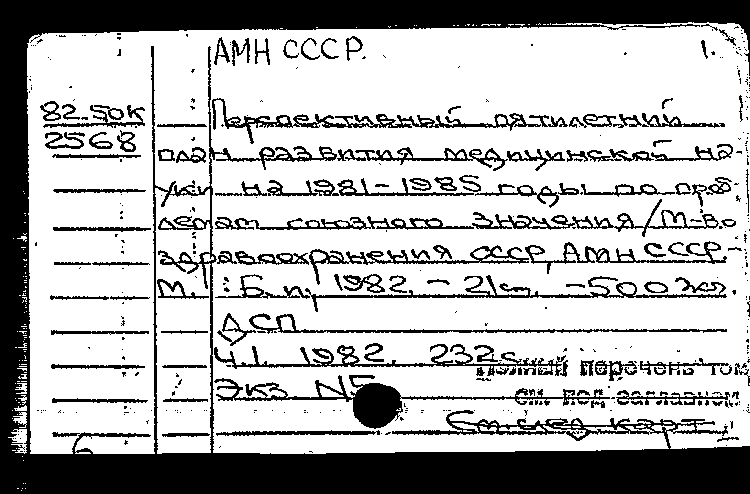 АМН СССР. 1.
82.50К
2568
Перспективный пятилетний
план развития медицинской на-
уки на 1981-1985 годы по проб-
лемам союзного значения/М-во
здравоохранения СССР, АМН СССР.-
М.: Б.и., 1982. - 21см. -500экз.
ДСП
Ч.1. 1982. 232с.
Полный перечень том
Экз №
см. под заглавием
См. след. карт.
6